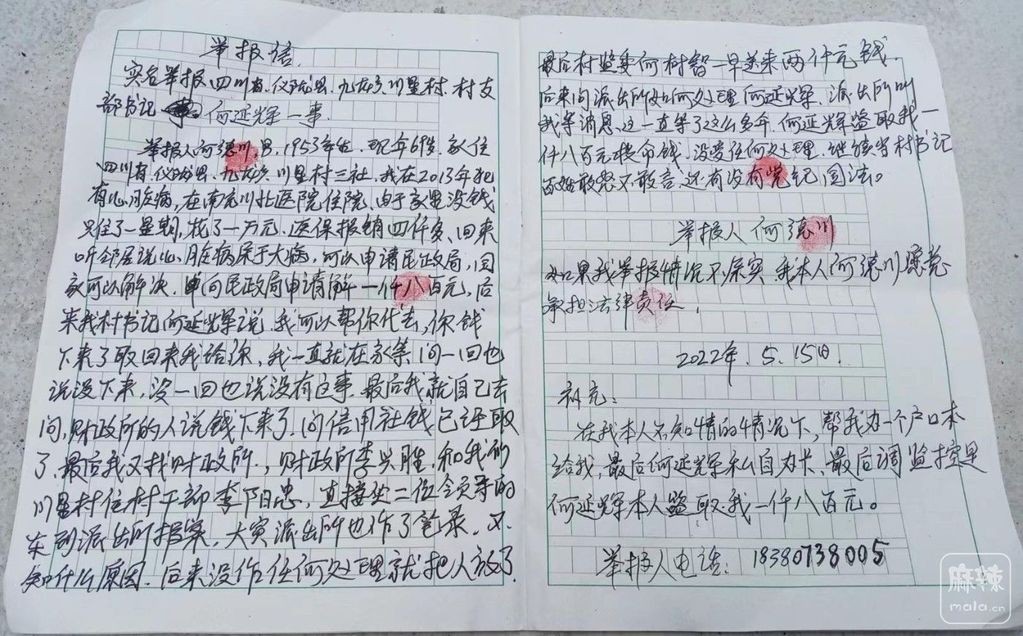 举报信
实名举报四川省仪陇县九龙乡川星村村支
部书记何延辉一事.
举报人何德川男,1953年生.现年6性.家住
四川省仪陇县九龙乡川星村三社.我在2013年把
有心脏病,在南充川北医院住院,由于家里没钱
只住了一星期,花了一万元.医保报销四仟多、回来
听邻居说心脏病属于大病,可以申请民政局,国
家可以解决.申问民政局申请解一仟八百元,后
来我村书记何延辉说,我可以帮你代去,你钱
下来了取回来我给你,我一直就在家等.问一回也
说没下来,没一回也说没有这事.最后我就自己去
问,财政所的人说钱下来了.问信用社钱已经取
了.最后我又找财政所.,财政所李兴胜.和我们
川星村住村干部李阳忠,直接坐二位领导的
车到派出所报案,大寅派出所也作了笔录.不
知什么原因.后来没作任何处理就把人放了.
最后村监委何树智一早送来两仟元钱.
后来问派出所如何处理何延辉.派出所叫
我等消息.这一直等了这么多年.何延辉盗取我一
仟八百元救命钱.没受任何处理.继续当村书记
百姓敢怒不敢言.还有没有党纪国法。
举报人何德川
如果我举报情况不属实 我本人何德川愿意
承担法律责任.
2022年.5.15日.
补充:
在我本人不知情的情况下,帮我办一个户口本
给我,最后何延辉私自办卡、最后调监控是
何延辉本人盗取我一仟八百元。
举报人电话:18380738005
麻辣
mala.cn